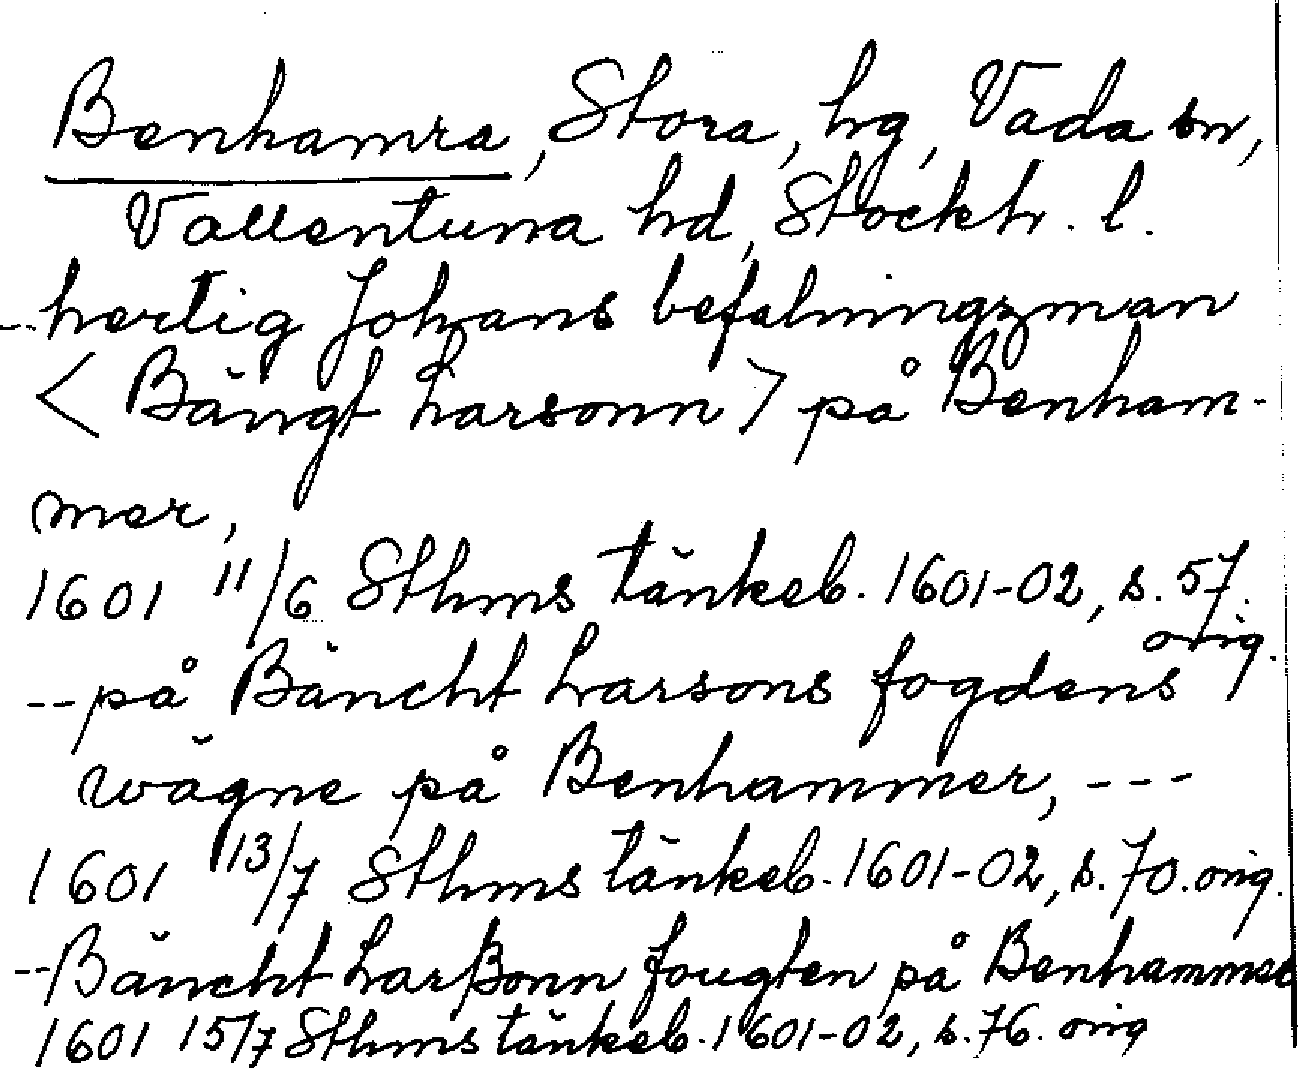 Benhamra, Stora, hg, Vada sn,
Vallentuna hd, Stockh. l.
--hertig Johans befalningzman
<Bängt Larsonn> på Benham-
mer,
1601 11/6 Sthms tänkeb. 1601-02, s. 57.
orig.
--på Bäncht Larsons fogdens
wägne på Benhammer, ---
1601 13/7 Sthms tänkeb. 1601-02, s. 70. orig.
--Bäncht Larßonn fougten på Benhammer
1601 15/7 Sthms tänkeb. 1601-02, s. 76. orig